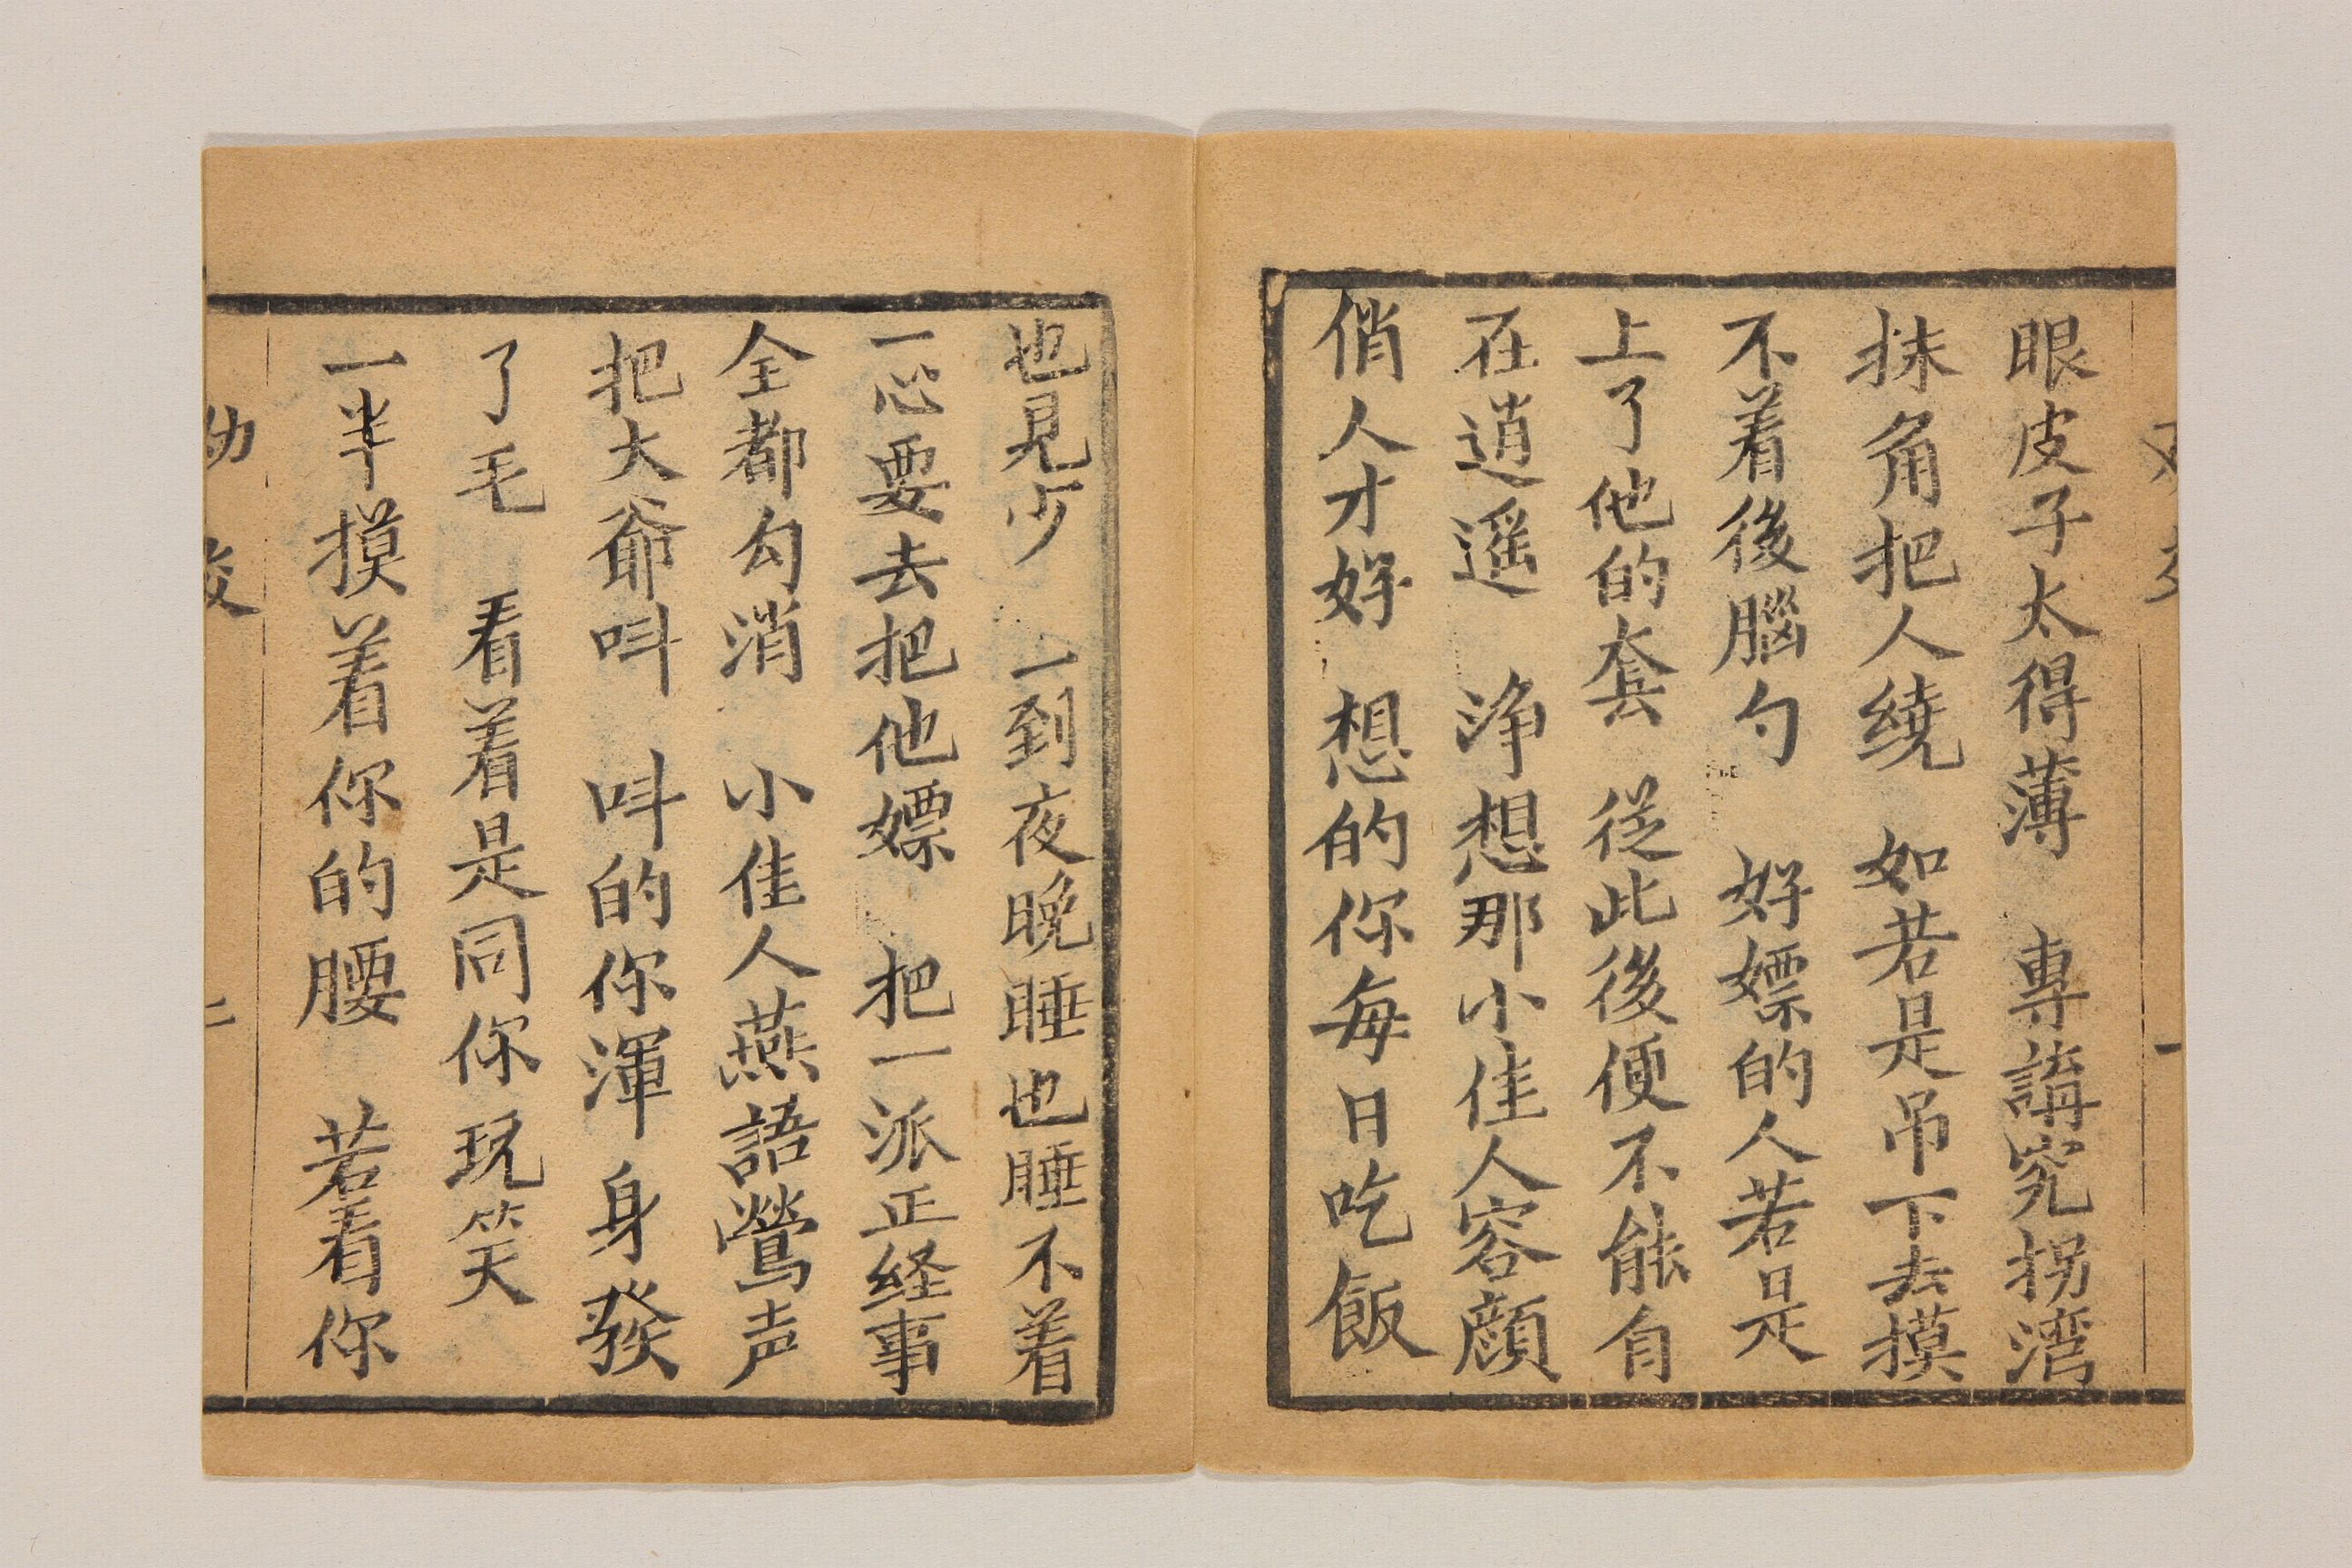 眼皮子太得薄　專講究拐湾
抹角把人繞　如若是吊下去摸
不着後腦勺　好嫖的人若是
上了他的套　從此後便不能自
在逍遥　淨想那小佳人容顔
俏人才好　想的你每日吃飯
也見少　一到夜晚睡也睡不着
一心要去把他嫖　把一派正経事
全都勾消　小佳人燕語鶯声
把大爺呌　呌的你渾身發
了毛　看着是同你玩笑
一半摸着你的腰　若看你
二